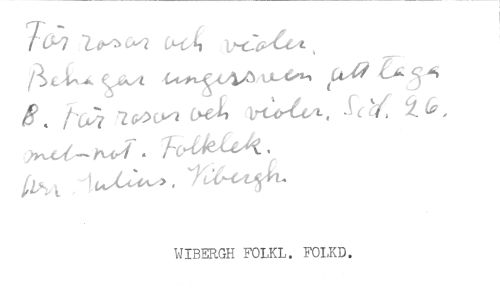 För rosor och violer.
Behagar ungersven att taga
B. För rosor och violer. Sid. 26.
mel-not. Folklek.
Arr. Julius. Vibergh.
WIBERGH FOLKL. FOLKD.